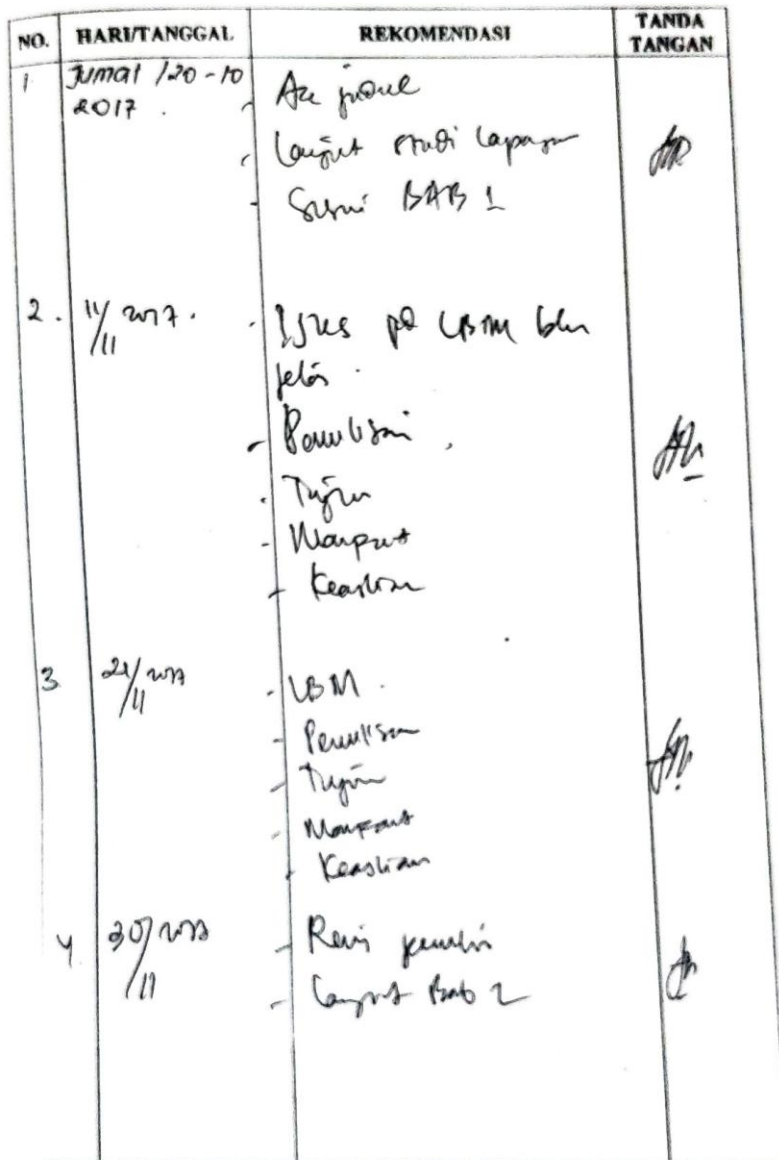 NO. HARI/TANGGAL REKOMENDASI TANDA TANGAN
1 Jumat / 20-10 2017.
- Acc judul
- Lanjut studi lapangan
- Susun BAB 1
2. 11/11 2017.
- Issues pd LBM blm
jelas.
- Penulisan
- Tujuan
- Manfaat
- Keaslian
3. /11 2017
- LBM.
- Penulisan
- Tujuan
- Manfaat
- Keaslian
4 30/11 2017
- Revisi penulis
- Lanjut Bab 2